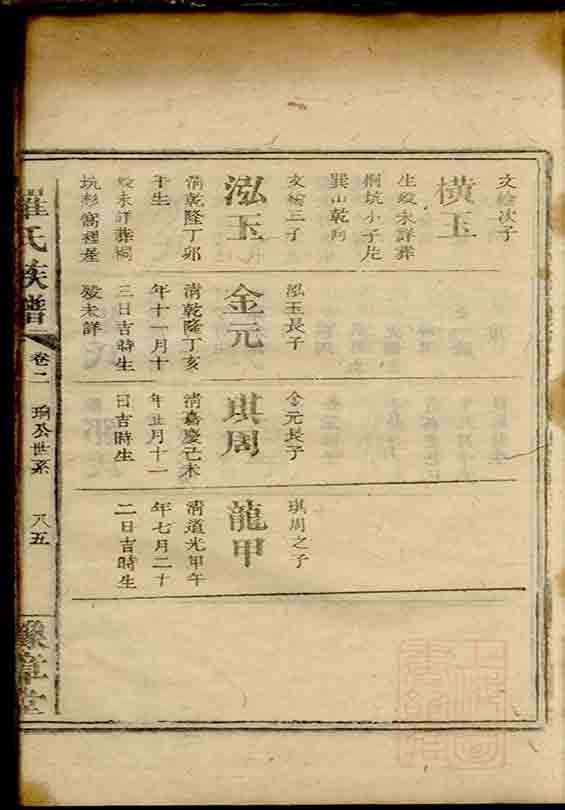 文檢次子
橫玉
生殁未詳葬
桐坑小子片
巽山乾向
文檢三子
泓玉
清乾隆丁卯
年生
殁未詳葬桐
坑杉窩裡崖
泓玉長子
金元
清乾隆丁亥
年十一月十
三日吉時生
殁未詳
金元長子
琪周
清嘉慶己未
年五月十一
日吉時生
琪周之子
龍甲
清道光甲午
年七月二十
二日吉時生
羅氏族譜
卷二
珦公世系
八五
豫章堂